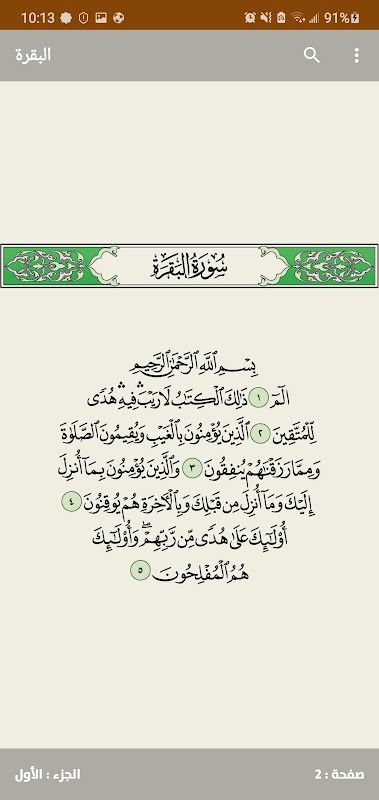 10:13
91%
البقرة
سُورَةُ البَقَرَةِ
بِسْمِ اللَّهِ الرَّحْمَٰنِ الرَّحِيمِ
الٓمٓ ١ ذَٰلِكَ الْكِتَابُ لَا رَيْبَ ۛ فِيهِ ۛ هُدًى
لِّلْمُتَّقِينَ ٢ الَّذِينَ يُؤْمِنُونَ بِالْغَيْبِ وَيُقِيمُونَ الصَّلَاةَ
وَمِمَّا رَزَقْنَاهُمْ يُنفِقُونَ ٣ وَالَّذِينَ يُؤْمِنُونَ بِمَا أُنزِلَ
إِلَيْكَ وَمَا أُنزِلَ مِن قَبْلِكَ وَبِالْآخِرَةِ هُمْ يُوقِنُونَ ٤
أُولَٰئِكَ عَلَىٰ هُدًى مِّن رَّبِّهِمْ ۖ وَأُولَٰئِكَ
هُمُ الْمُفْلِحُونَ ٥
صفحة : 2
الجزء : الأول